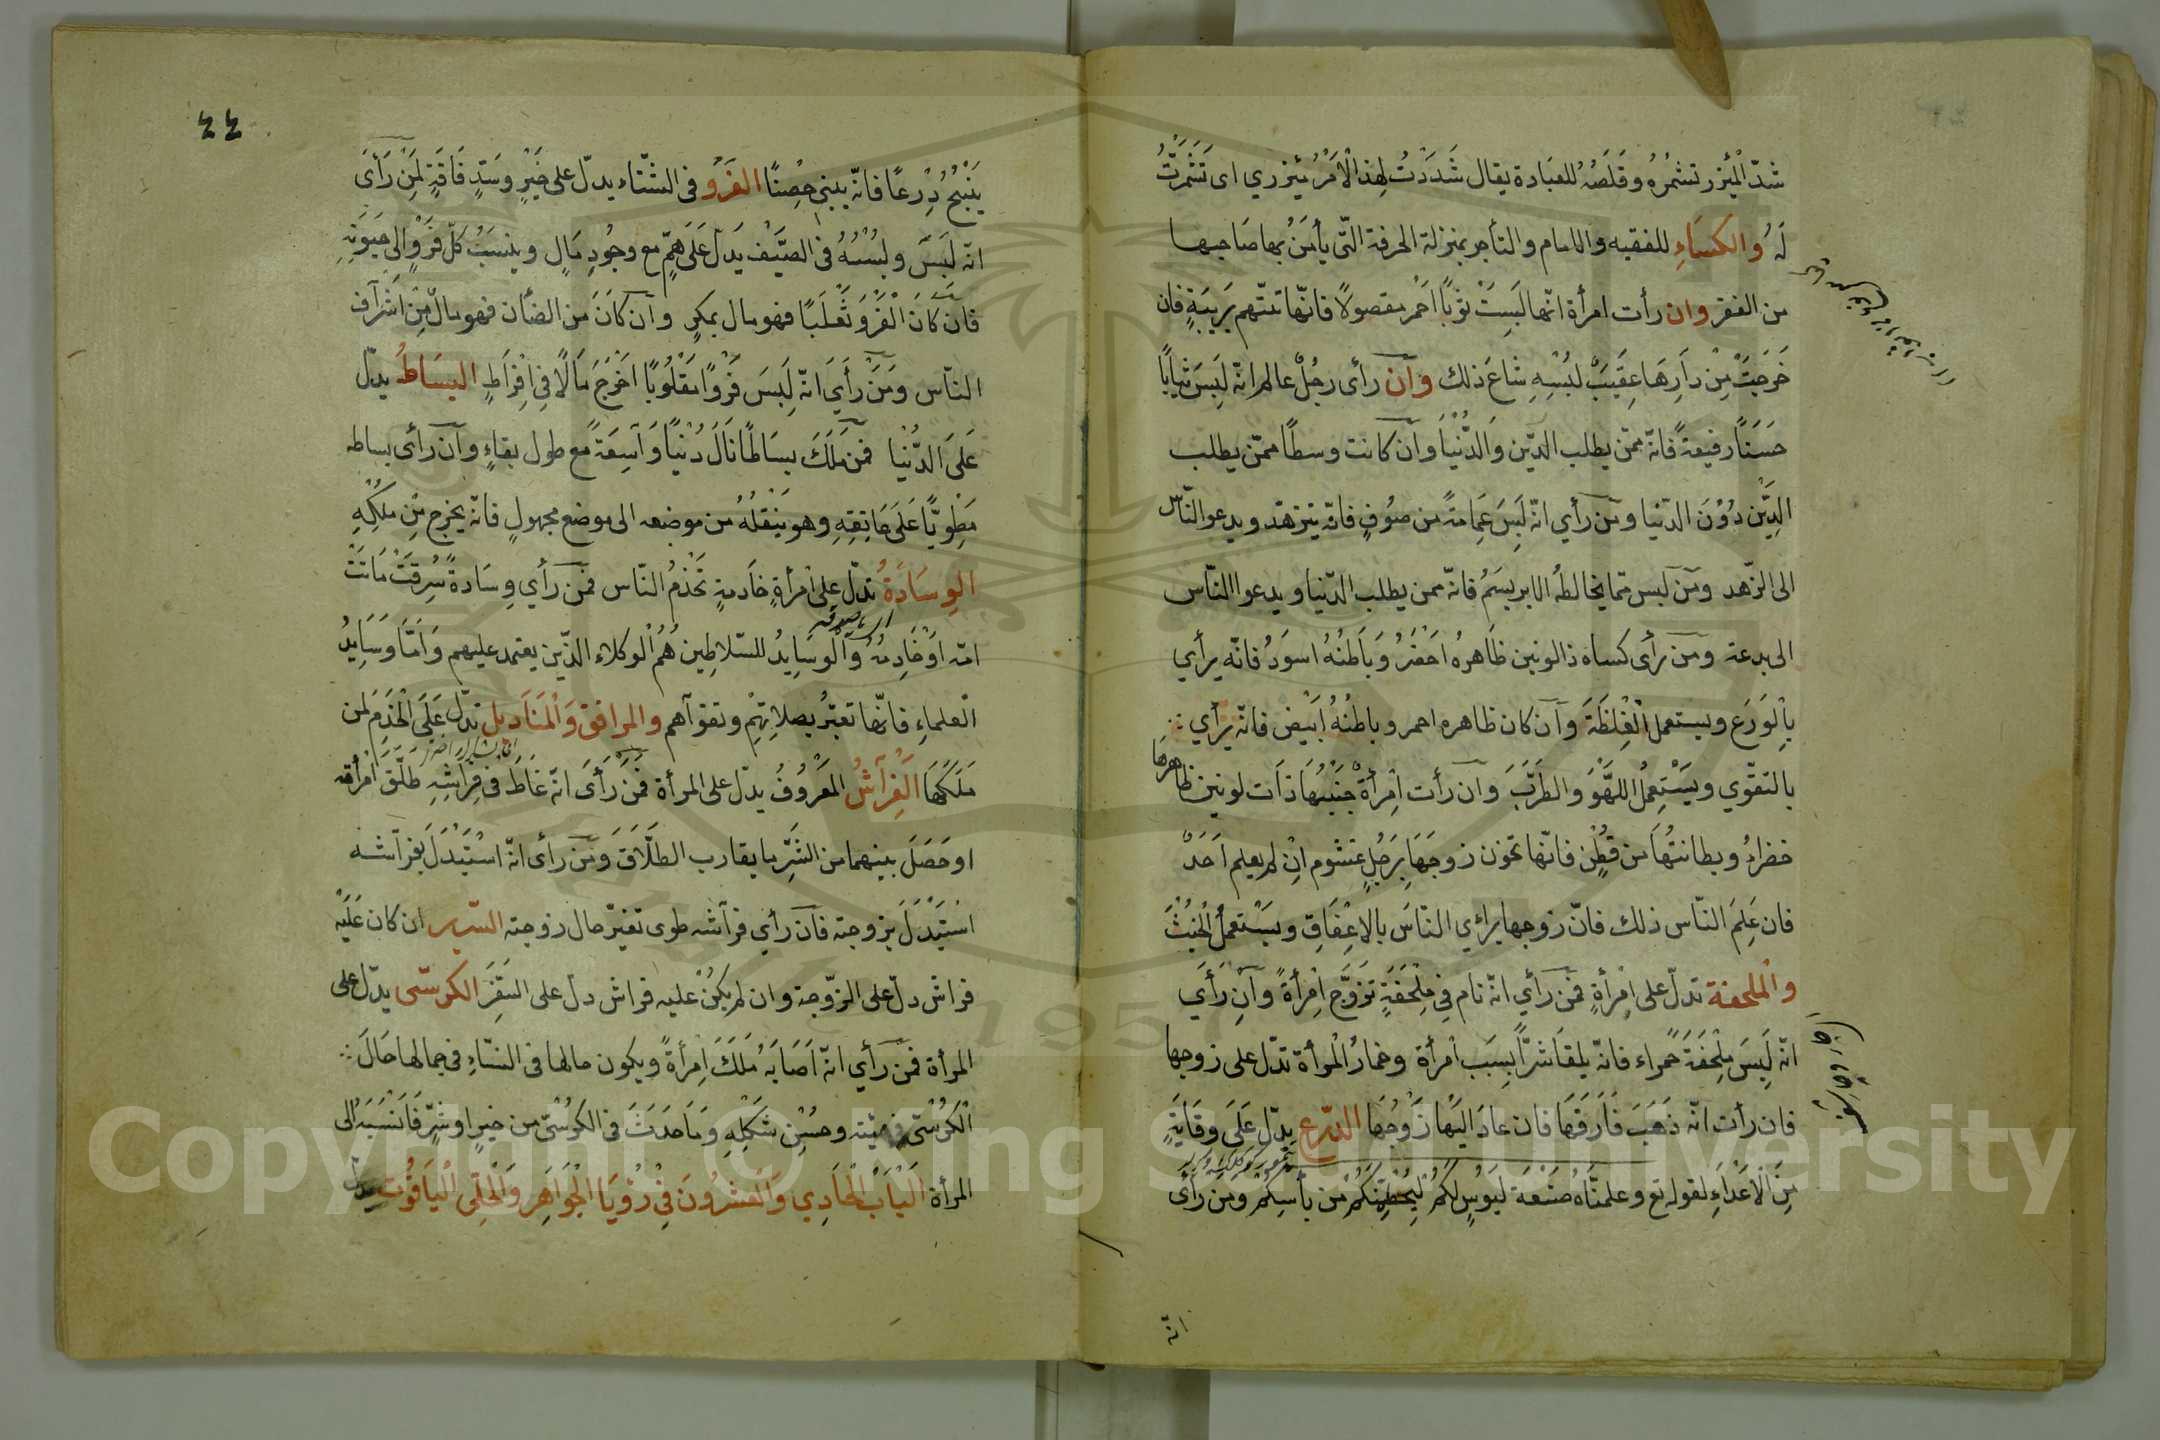 شدّ الْمِئزر تشمُرُه وقَلَصُهُ للعبَادة يقال شَدَدْتُ لِهذا الْاَمْرُ مِئزري اى تَشَمَّرْتُ
لَهُ والكسَاءِ للفقيه والامام والتأجر بمنزلة الحرفة التّى يأمَنُ بها صَاحبها
من الفقر وان رأت امرأة انّها لَبِسَتْ ثوْبًا اَحْمر مقصولًا فانّها تتّهم بَرِيبَةٍ فان
خَرجَتْ مِنْ دَارِهَا عِقَيبَ لبُسْهِ شاعَ ذلك وان رأى رجُلٌ عالم انّه لِبسَ ثيابًا
حَسَنًا رفيعةً فانّه ممّن يطلب الدّين والدّنْيا وان كانت وسطًا ممّن يطلب
الدِيّن دُوْنَ الدّنيا ومن رأي انّه لَبِسَ عِمَامَةً من صُوفٍ فانّه يتزهّد ويدعو النّاس
الى الزّهد ومن لبس ممّا يخالطهُ الابريسَمُ فانّه ممن يطلب الدّنيا ويدعوا النّاس
الى بدعة ومن رأى كساه ذا لونين ظَاهرهُ اَحْضَرُ وبَاطنُهُ اسوَدُ فانّه يرأي
بِالْوَرَع ويستعمل الْغِلظَةَ وان كان ظاهره احمر وباطنُهُ اَبْيَض فانّه يَرْأي
بالتقوّي ويَسْتَعِملُ اللهَّوَ والطَرَبَ وان رأت اِمْرأةٌ جُبَّتُهَا ذَات لونين ظاهرهَا
خضراءُ وبطانتُهَا من قُطْنٍ فانّها تخون زوجَهَا بِرَجُلٍ غشوم اِنْ لم يعلم اَحَدٌ
فان عَلِمَ النّاس ذلك فانّ زوجها يرائي النّاسَ بالاعِفَاقِ ويَسْتعمُلُ الْخبُثَ
والْملحفة تدلّ على اِمْرأةٍ فمن رَأي انّه نام فِي مِلْحَفَةٍ تَزوَّج اِمْرأةً وان رَأَي
انّه لَبِسَ مِلْحفَةَ حَمراء فانّه يلقا شرًّا بِسبَبِ امْرأة وخمارُ الْمرأة تدّل على زوجها
فان رأت انّه ذهَبَ فَارَقَهَا فان عادَ اليهَا زَوْجُهَا الدّرع يدّل عَلَى وقَايَةٍ
مِنَ الْاَعْدَاءِ لقوله تع وعلمنَّاهُ صَنْعَة لَبوُسٍ لكُمْ لِيحُصِّنَكُمْ من بَأسِكُمْ ومن رأى
انّه
٤٤
يَنْبُجُ دِرْعًا فانّه يبنى حِصْنًا الفَرْو فى الشتاء يدلّ على خَيْرٍ وسَدٍّ فَاقَةٍ لِمَنْ رَأىَ
انّه لَبسَ ولبُسْهُ فى الصَيْف يَدلّ عَلَى هَمٍّ مع وجُودِ مَالٍ وينسَبُ كلّ فرْوٍ الى حَيوَنِهِ
فان كَانَ الْفَرْوَ ثَعْلَبًا فهو مال بمكرٍ وان كَانَ من الضأن فهو مالٌ مِنْ اشْرآف
النّاس ومَنْ رأَيَ انّه لِبَسَ فرْوًا مَقْلُوبًا اخْرَجَ مَالًا فِى اِفْرَاطٍ البِسَاطُ يدلّ
عَلىَ الدُّنْيا فمن مَلَكَ بِسَاطًا نَالَ دُنْيًا وَاسِعَةً مع طول بقاءٍ وان رأى بساطه
مَطْوِيًّا عَلَى عَاتِقِهِ وهو يَنْقلُهُ من موضعه الى موضع مجهولٍ فانّه يخرج مِن مِلكِهِ
الوِسَادَةُ تدلّ على اْمرأةٍ خَادمةٍ تَخْدُمُ النّاس فمن رأي وِسَادةً سُرِقَتْ مَاتَتْ
امّه اَوْ خَادِمُهُ والْوسَايدُ للسّلاطِين هُمُ الْوكلاء الذّين يعتمد عليهم وَاَمّا وَسَايدُ
الْعلماءِ فانّها تعبّرُ بصلاتِهمْ وتقوآهم والمرافق وَالْمَنَاديل تدّل عَلَى الْخَدَم لمن
مَلَكَهَا الْفِرَآشُ المَعْرُوفُ يدّل على المرأة فَمنْ رَأىَ انّه غَاطَ فى فِرَاشِهِ طلّقَ امْرأته
او حَصَلَ بينهما من الشَرِّ ما يقارب الطلَّاقَ ومن رأى انّه اسْتَبْدَلَ بفرآشه
اسْتَبْدَلَ بزوجة فان رأي فرآشه طوى تغيّر حال زوجته السّرير ان كان عَلَيْه
فراش دلّ على الزّوجة وان لم يكُنْ عليه فراش دلّ على السَفَر الكرسّى يدّل على
المرأة فمن رأي انّه اَصَابَهُ مَلَكَ اِمْرأةً ويكون حالها فى النسّاءِ فى جمالها حَالَ
الْكُرْسّى فى هَيْئته وحسُنِ شَكْلِهِ ومَا حَدَثَ فى الكرُسّى من خيرٍ او شرٍّ فَانْسَبَهُ الى
المرأة الْبَابُ الْحَادِي وَالعشرُونَ فِىْ رؤيَا الْجواهِر وَالْحَلِى الْيَاقُوتُ يدلّ
Copyright © King Saud University
1957